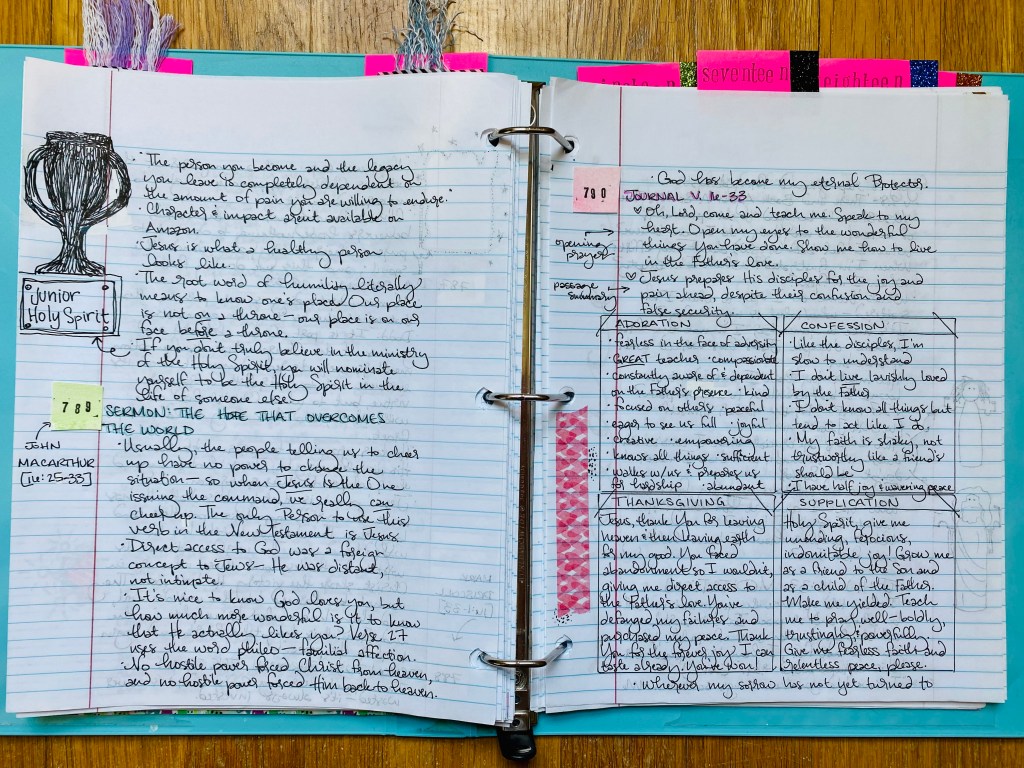 seventeen
eighteen
• The person you become and the legacy
you leave is completely dependent on
the amount of pain you are willing to endure.
• Character & impact aren't available on
Amazon.
• Jesus is what a healthy person
looks like.
• The root word of humility literally
means to know one's place. Our place
is not on a throne – our place is on our
face before a throne.
• If you don't truly believe in the ministry
of the Holy Spirit, you will nominate
yourself to be the Holy Spirit in the
life of someone else.
Junior
Holy Spirit
789
SERMON: THE HOPE THAT OVERCOMES
THE WORLD
JOHN
MACARTHUR
[16:25-33]
• Usually, the people telling us to cheer
up have no power to change the
situation – so when Jesus is the One
issuing the command, we really can
cheer up. The only Person to use this
verb in the New Testament is Jesus.
• Direct access to God was a foreign
concept to Jews – He was distant,
not intimate.
• It's nice to know God loves you, but
how much more wonderful is it to know
that He actually likes you? Verse 27
uses the word phileo – familial affection.
• No hostile power forced Christ from heaven,
and no hostile power forced Him back to heaven.
• God has become my eternal Protector.
790
JOURNAL V. 16-33
opening
prayer
♡ Oh, Lord, come and teach me. Speak to my
heart. Open my eyes to the wonderful
things You have done. Show me how to live
in the Father's love.
passage
summary
♡ Jesus prepares His disciples for the joy and
pain ahead, despite their confusion and
false security.
ADORATION
• fearless in the face of adversity
• GREAT teacher • compassionate
• constantly aware of & dependent
on the Father's presence • kind
• focused on others • peaceful
• eager to see us full • joyful
• creative • empowering
• knows all things • sufficient
• walks w/us & prepares us
for hardship • abundant
CONFESSION
• Like the disciples, I'm
slow to understand
• I don't live lavishly loved
by the Father
• I don't know all things but
tend to act like I do.
• My faith is shaky, not
trustworthy like a friend's
should be
• I have half joy & wavering peace
THANKSGIVING
Jesus, thank You for leaving
heaven & then leaving earth
for my good. You faced
abandonment so I wouldn't,
giving me direct access to
the Father's love. You've
defanged my failures and
purchased my peace. Thank
You for the forever joy I can
taste already. You've won!
SUPPLICATION
Holy Spirit, give me
unending, ferocious,
indomitable, joy! Grow me
as a friend to the Son and
as a child of the Father.
Make me yielded. Teach
me to pray well – boldly,
trustingly & powerfully.
Give me fearless faith and
relentless peace, please.
• Wherever my sorrow has not yet turned to